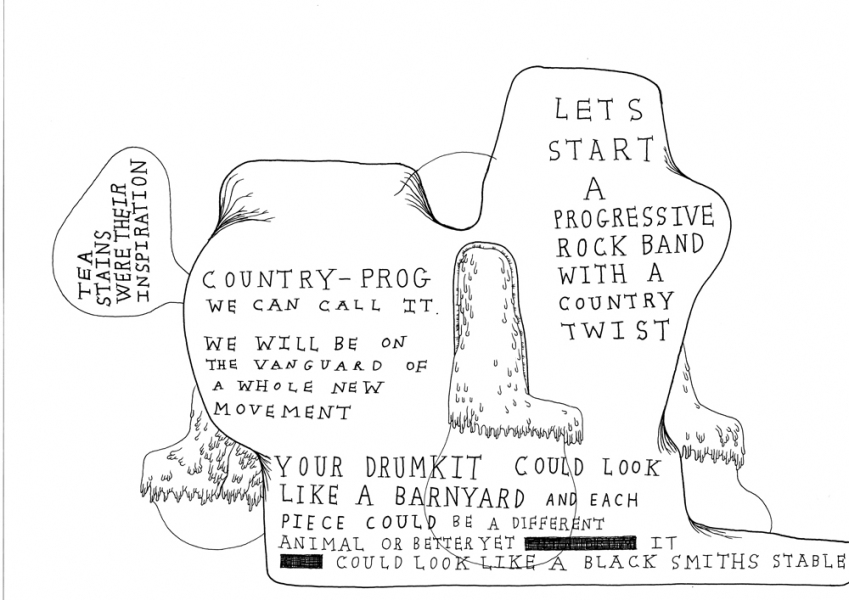 LETS
START
A
PROGRESSIVE
ROCK BAND
WITH A
COUNTRY
TWIST
TEA
STAINS
WERE THEIR
INSPIRATION
COUNTRY-PROG
WE CAN CALL IT.
WE WILL BE ON
THE VANGUARD OF
A WHOLE NEW
MOVEMENT
YOUR DRUMKIT COULD LOOK
LIKE A BARNYARD AND EACH
PIECE COULD BE A DIFFERENT
ANIMAL OR BETTER YET IT
COULD LOOK LIKE A BLACK SMITHS STABLE